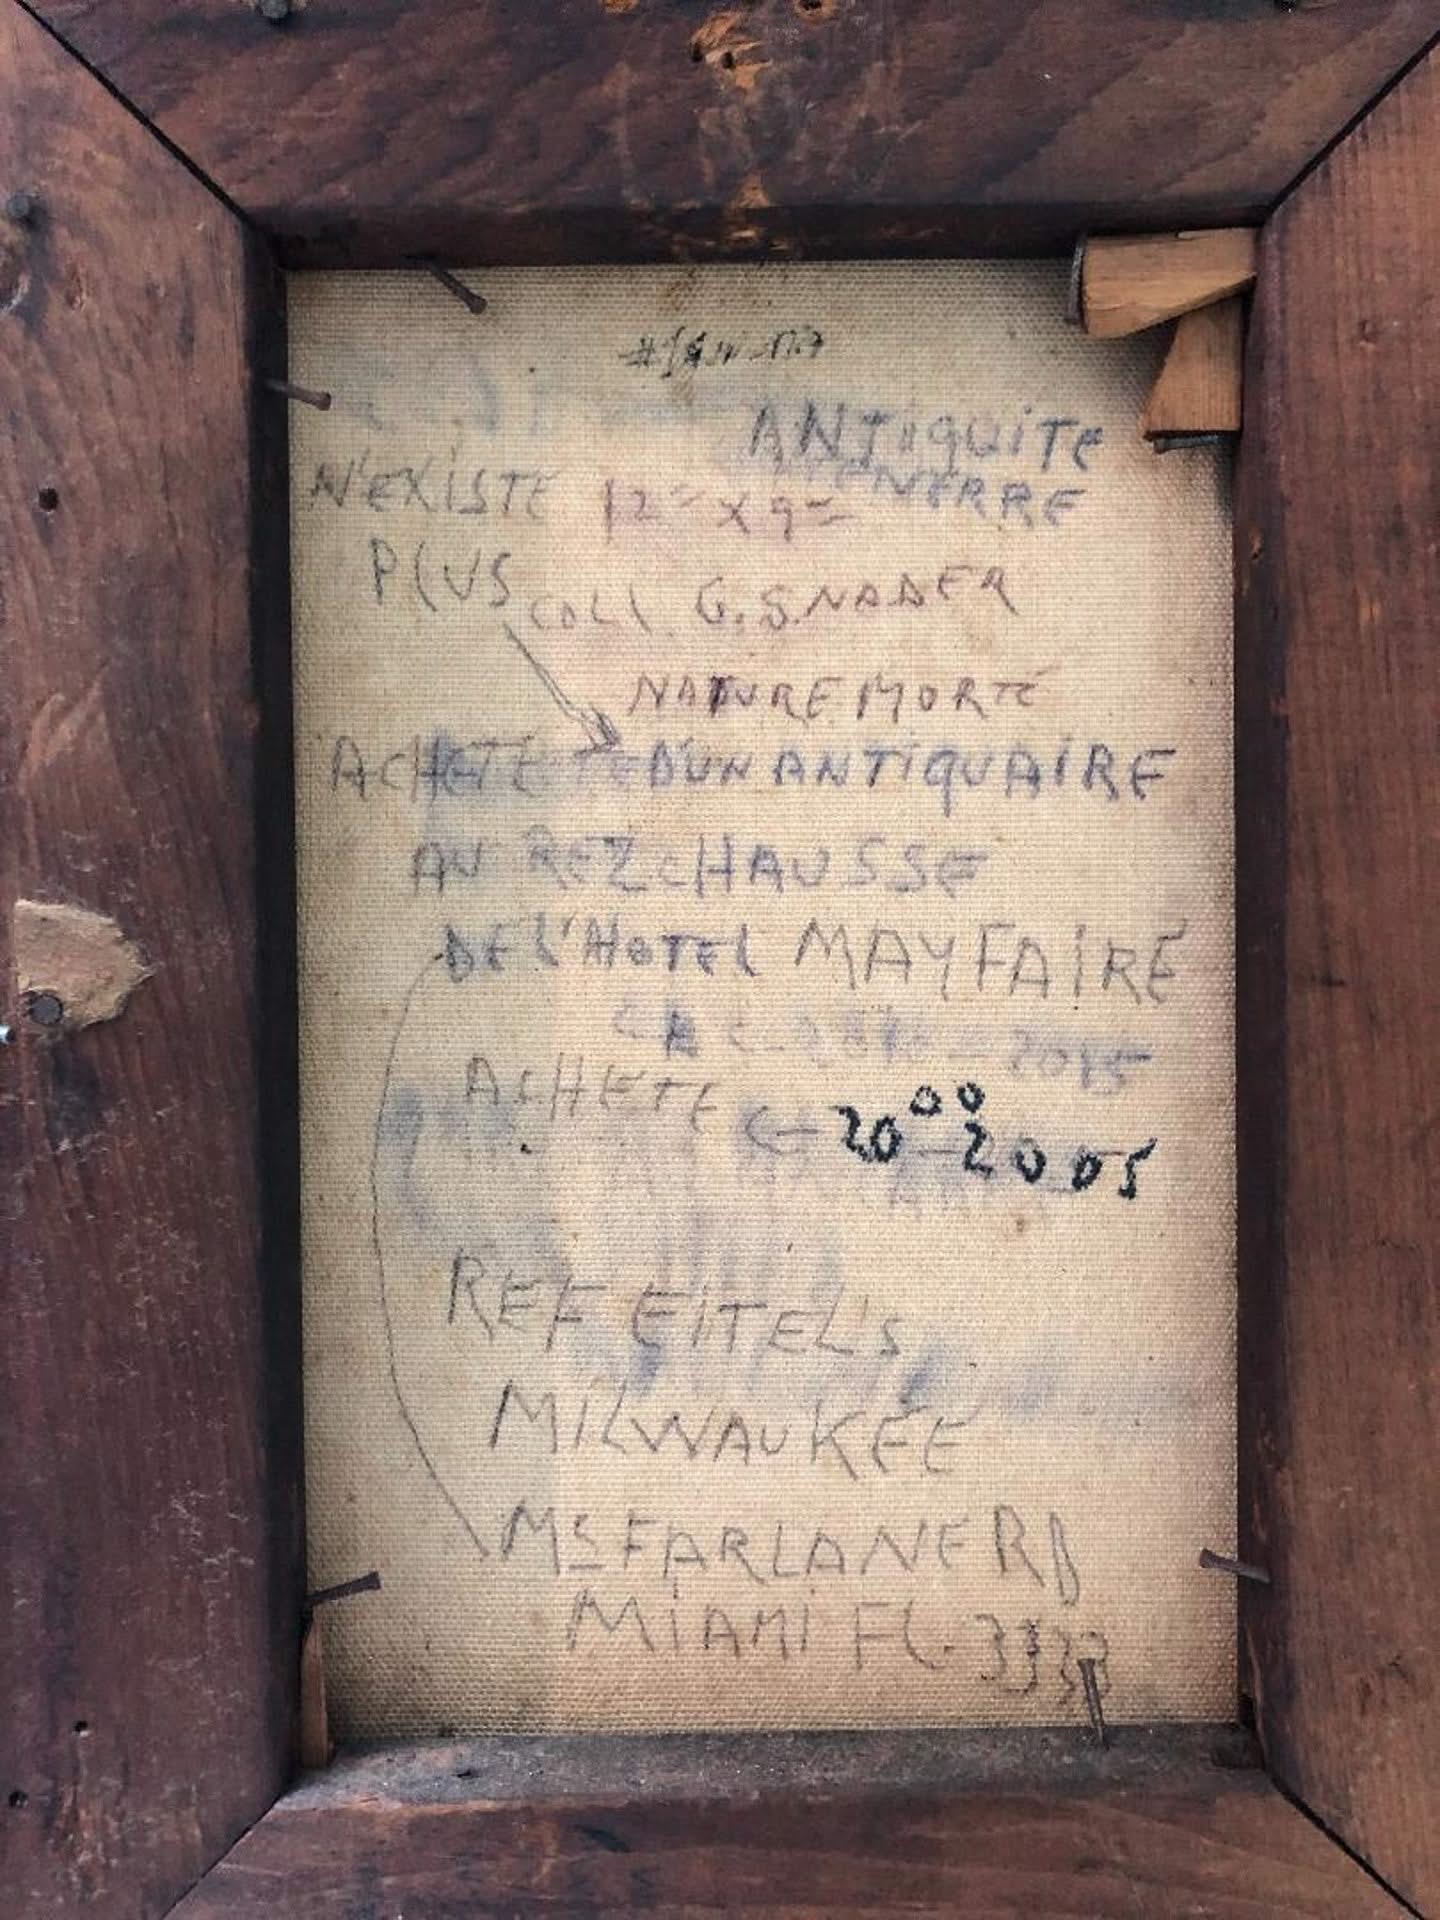 ANTIQUITE
N'EXISTE 12" X 9"
PLUS
COLL. G. S. NADER
NATURE MORTE
ACHETE D'UN ANTIQUAIRE
AU REZ CHAUSSE
DE L'HOTEL MAYFAIRE
2015
ACHETE 20 00 2005
REF EITEL'S
MILWAUKEE
MSFARLANE RD
MIAMI FL. 3333